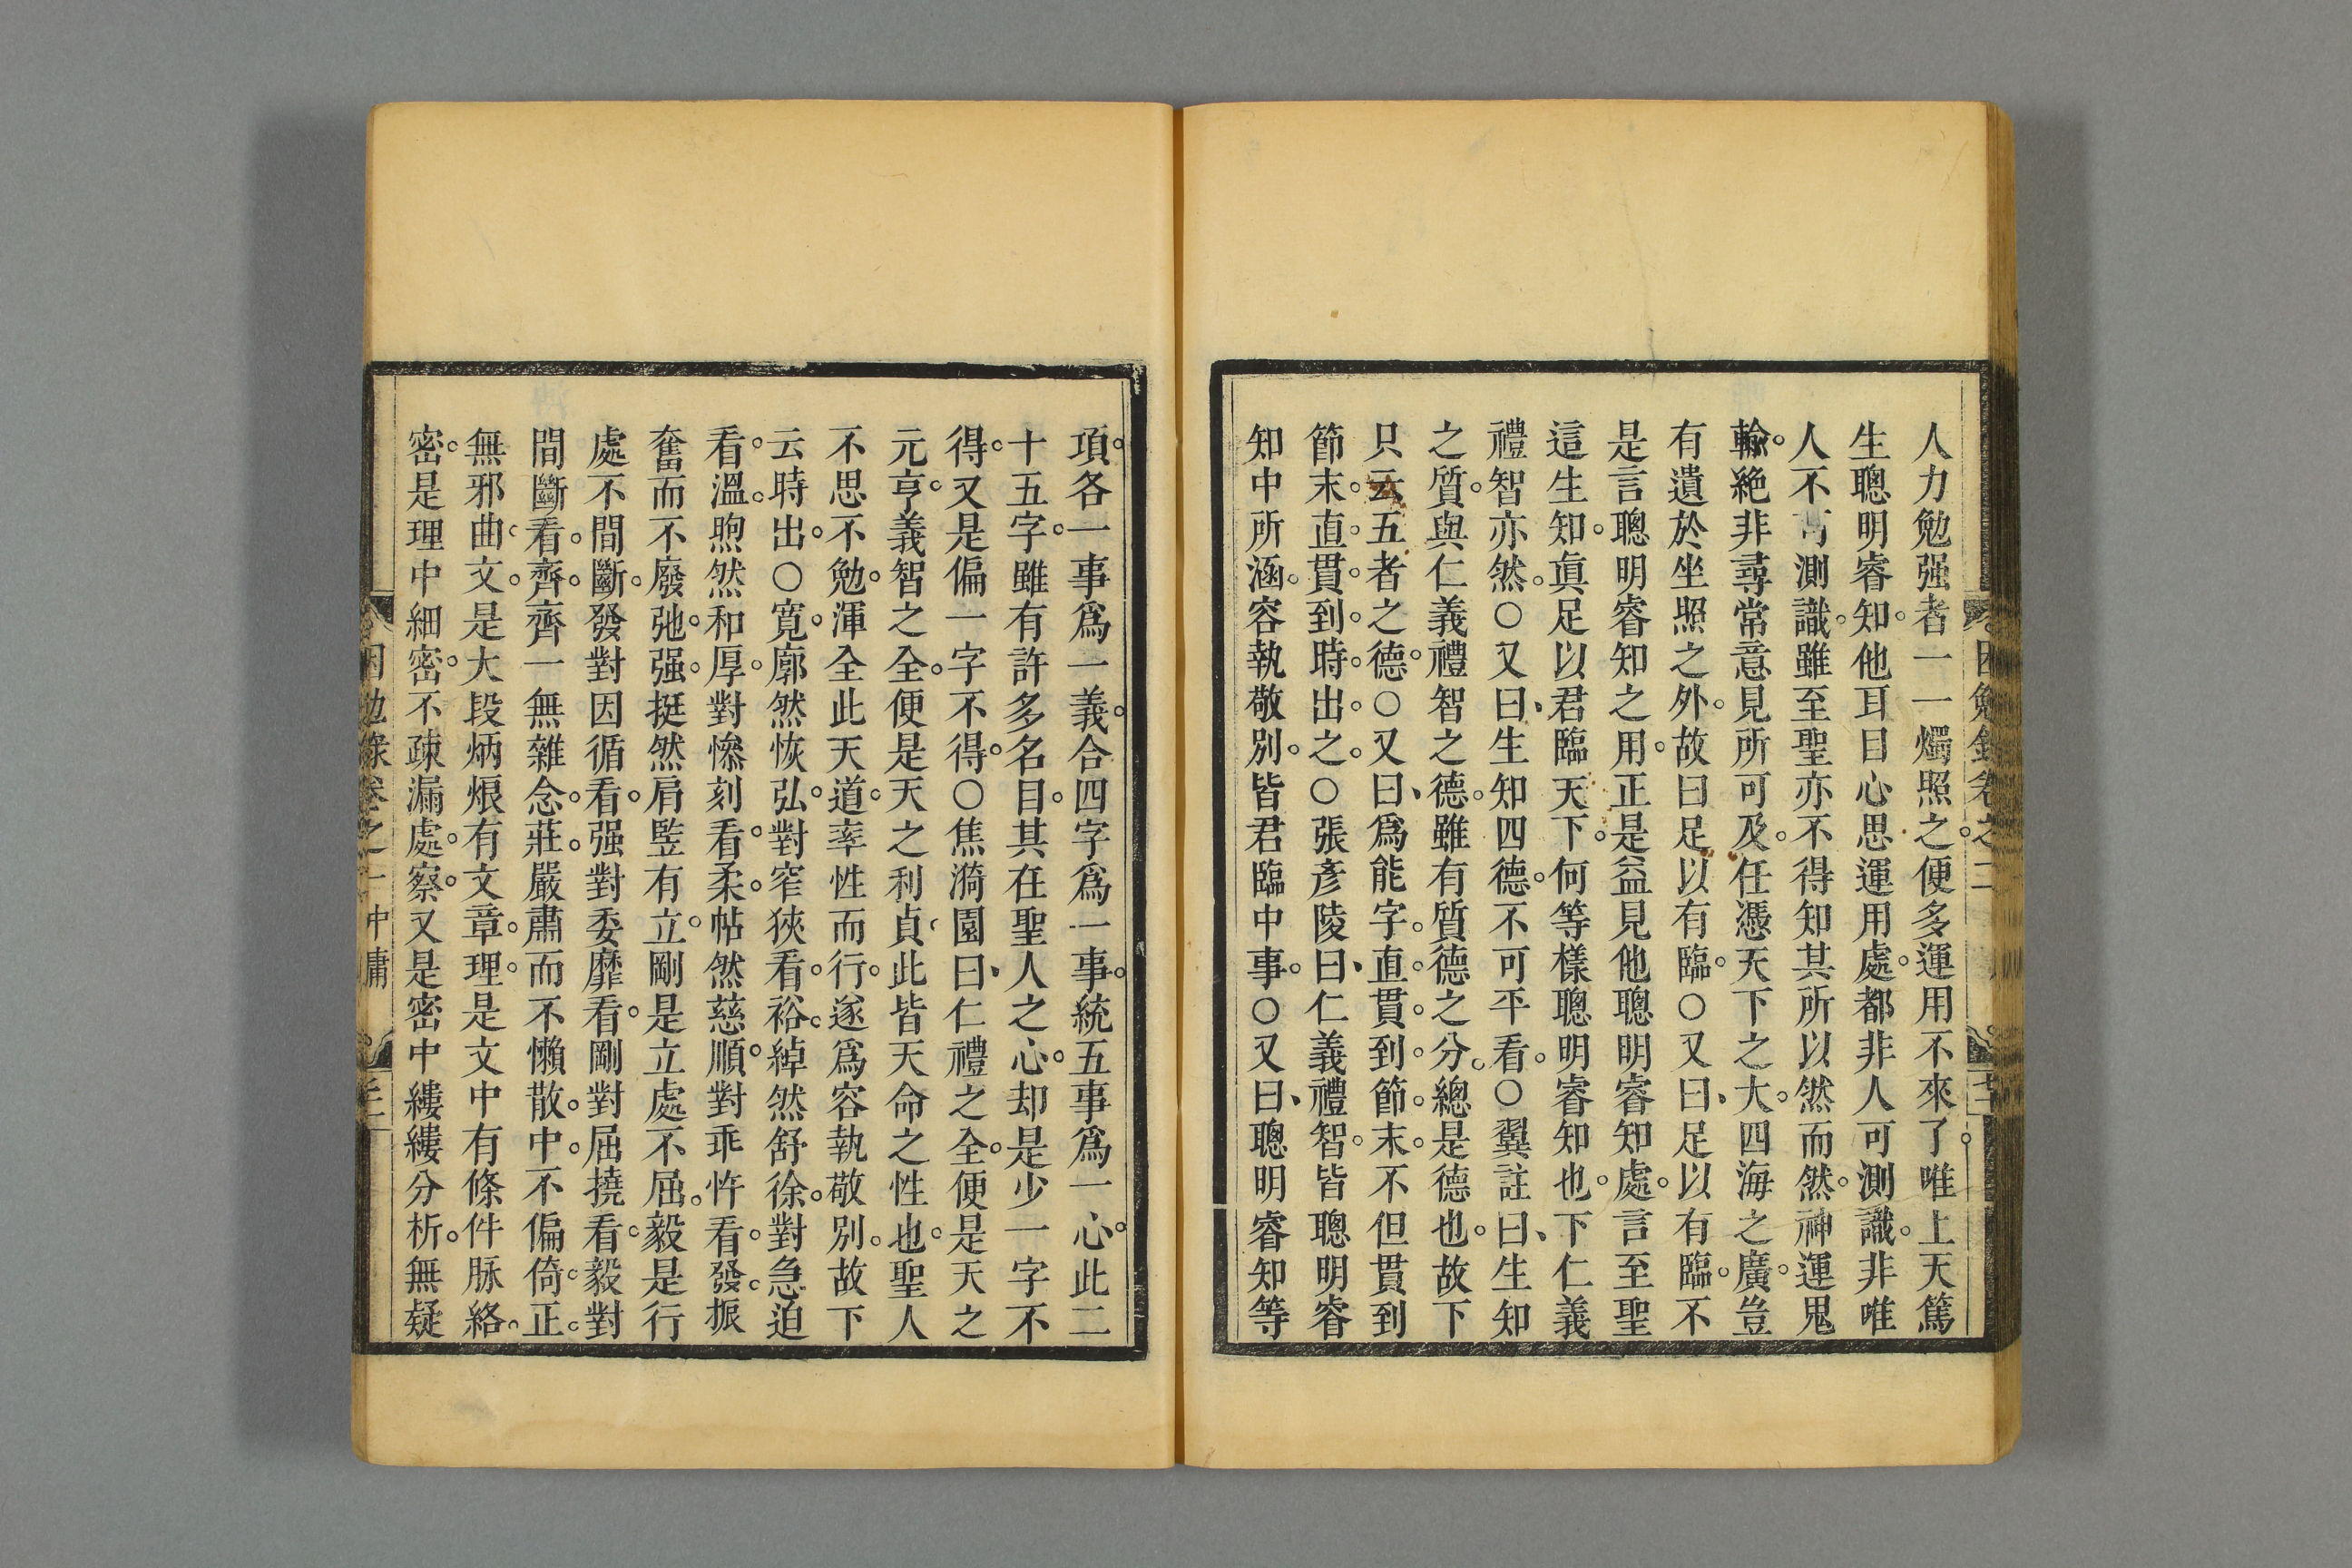 人力勉强者一一燭照之。便多運用不來了。唯上天篤
生聰明睿知。他耳目心思運用處。都非人可測識。非唯
人不可測識。雖至聖亦不得知其所以然而然。神運鬼
輸。絶非尋常意見所可及。任憑天下之大。四海之廣。豈
有遺於坐照之外。故曰足以有臨。○又曰、足以有臨。不
是言聰明睿知之用。正是益見他聰明睿知處。言至聖
這生知。眞足以君臨天下。何等樣聰明睿知也。下仁義
禮智亦然。○又曰、生知四德。不可平看。○翼註曰、生知
之質。與仁義禮智之德。雖有質德之分。總是德也。故下
只云五者之德。○又曰、爲能字。直。貫。到。節。末。不但貫到
節末。直。貫。到。時。出。之。○張彥陵曰、仁義禮智。皆聰明睿
知中所涵。容執敬別。皆君臨中事。○又曰、聰明睿知等
項。各一事爲一義。合四字爲一事。統五事爲一心。此二
十五字。雖有許多名目。其在聖人之心。却是少一字不
得。又是偏一字不得。○焦漪園曰、仁禮之全。便是天之
元亨。義智之全。便是天之利貞。此皆天命之性也。聖人
不思不勉。渾全此天道。率性而行。遂爲容執敬別。故下
云時出。○寬。廓然恢弘。對窄狹看。裕。綽然舒徐。對急迫
看。溫。煦然和厚。對慘刻看。柔。帖然慈順。對乖忤看。發。振
奮而不廢弛。强。挺然肩竪有立。剛是立處不屈。毅是行
處不間斷。發對因循看。强對委靡看。剛對屈撓看。毅對
間斷看。齊。齊一無雜念。莊。嚴肅而不懶散。中。不偏倚。正。
無邪曲。文。是大段炳烺有文章。理。是文中有條件脉絡。
密。是理中細密。不疎漏處。察。又是密中縷縷分析。無疑
困勉錄卷之二 中庸